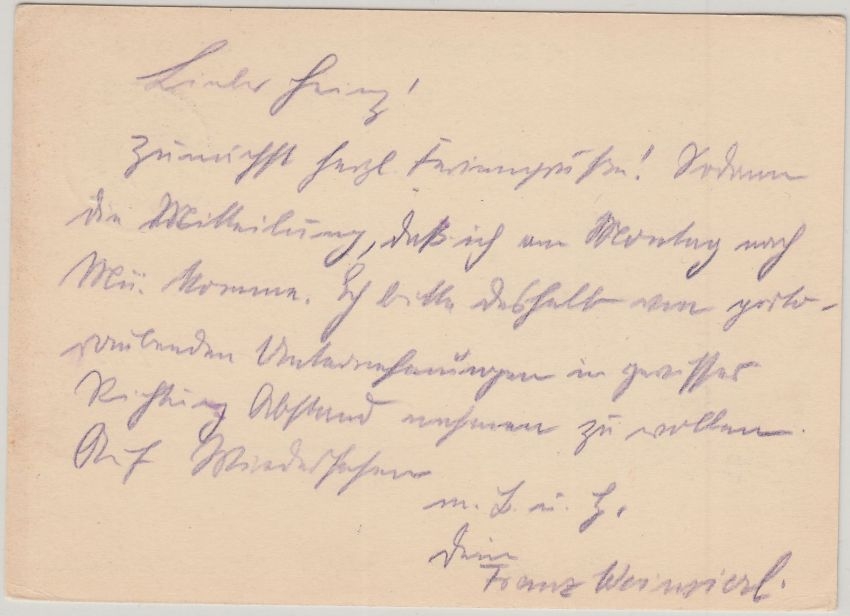 Lieber Heinz!
Zunächst herzl. Feriengrüße! Sodann
die Mitteilung, daß ich am Montag nach
Mü. komme. Ich bitte deshalb von porto-
raubenden Unternehmungen in gewisser
Richtung Abstand nehmen zu wollen.
Auf Wiedersehen
m. b. u. H.
Dein
Franz Weinzierl.